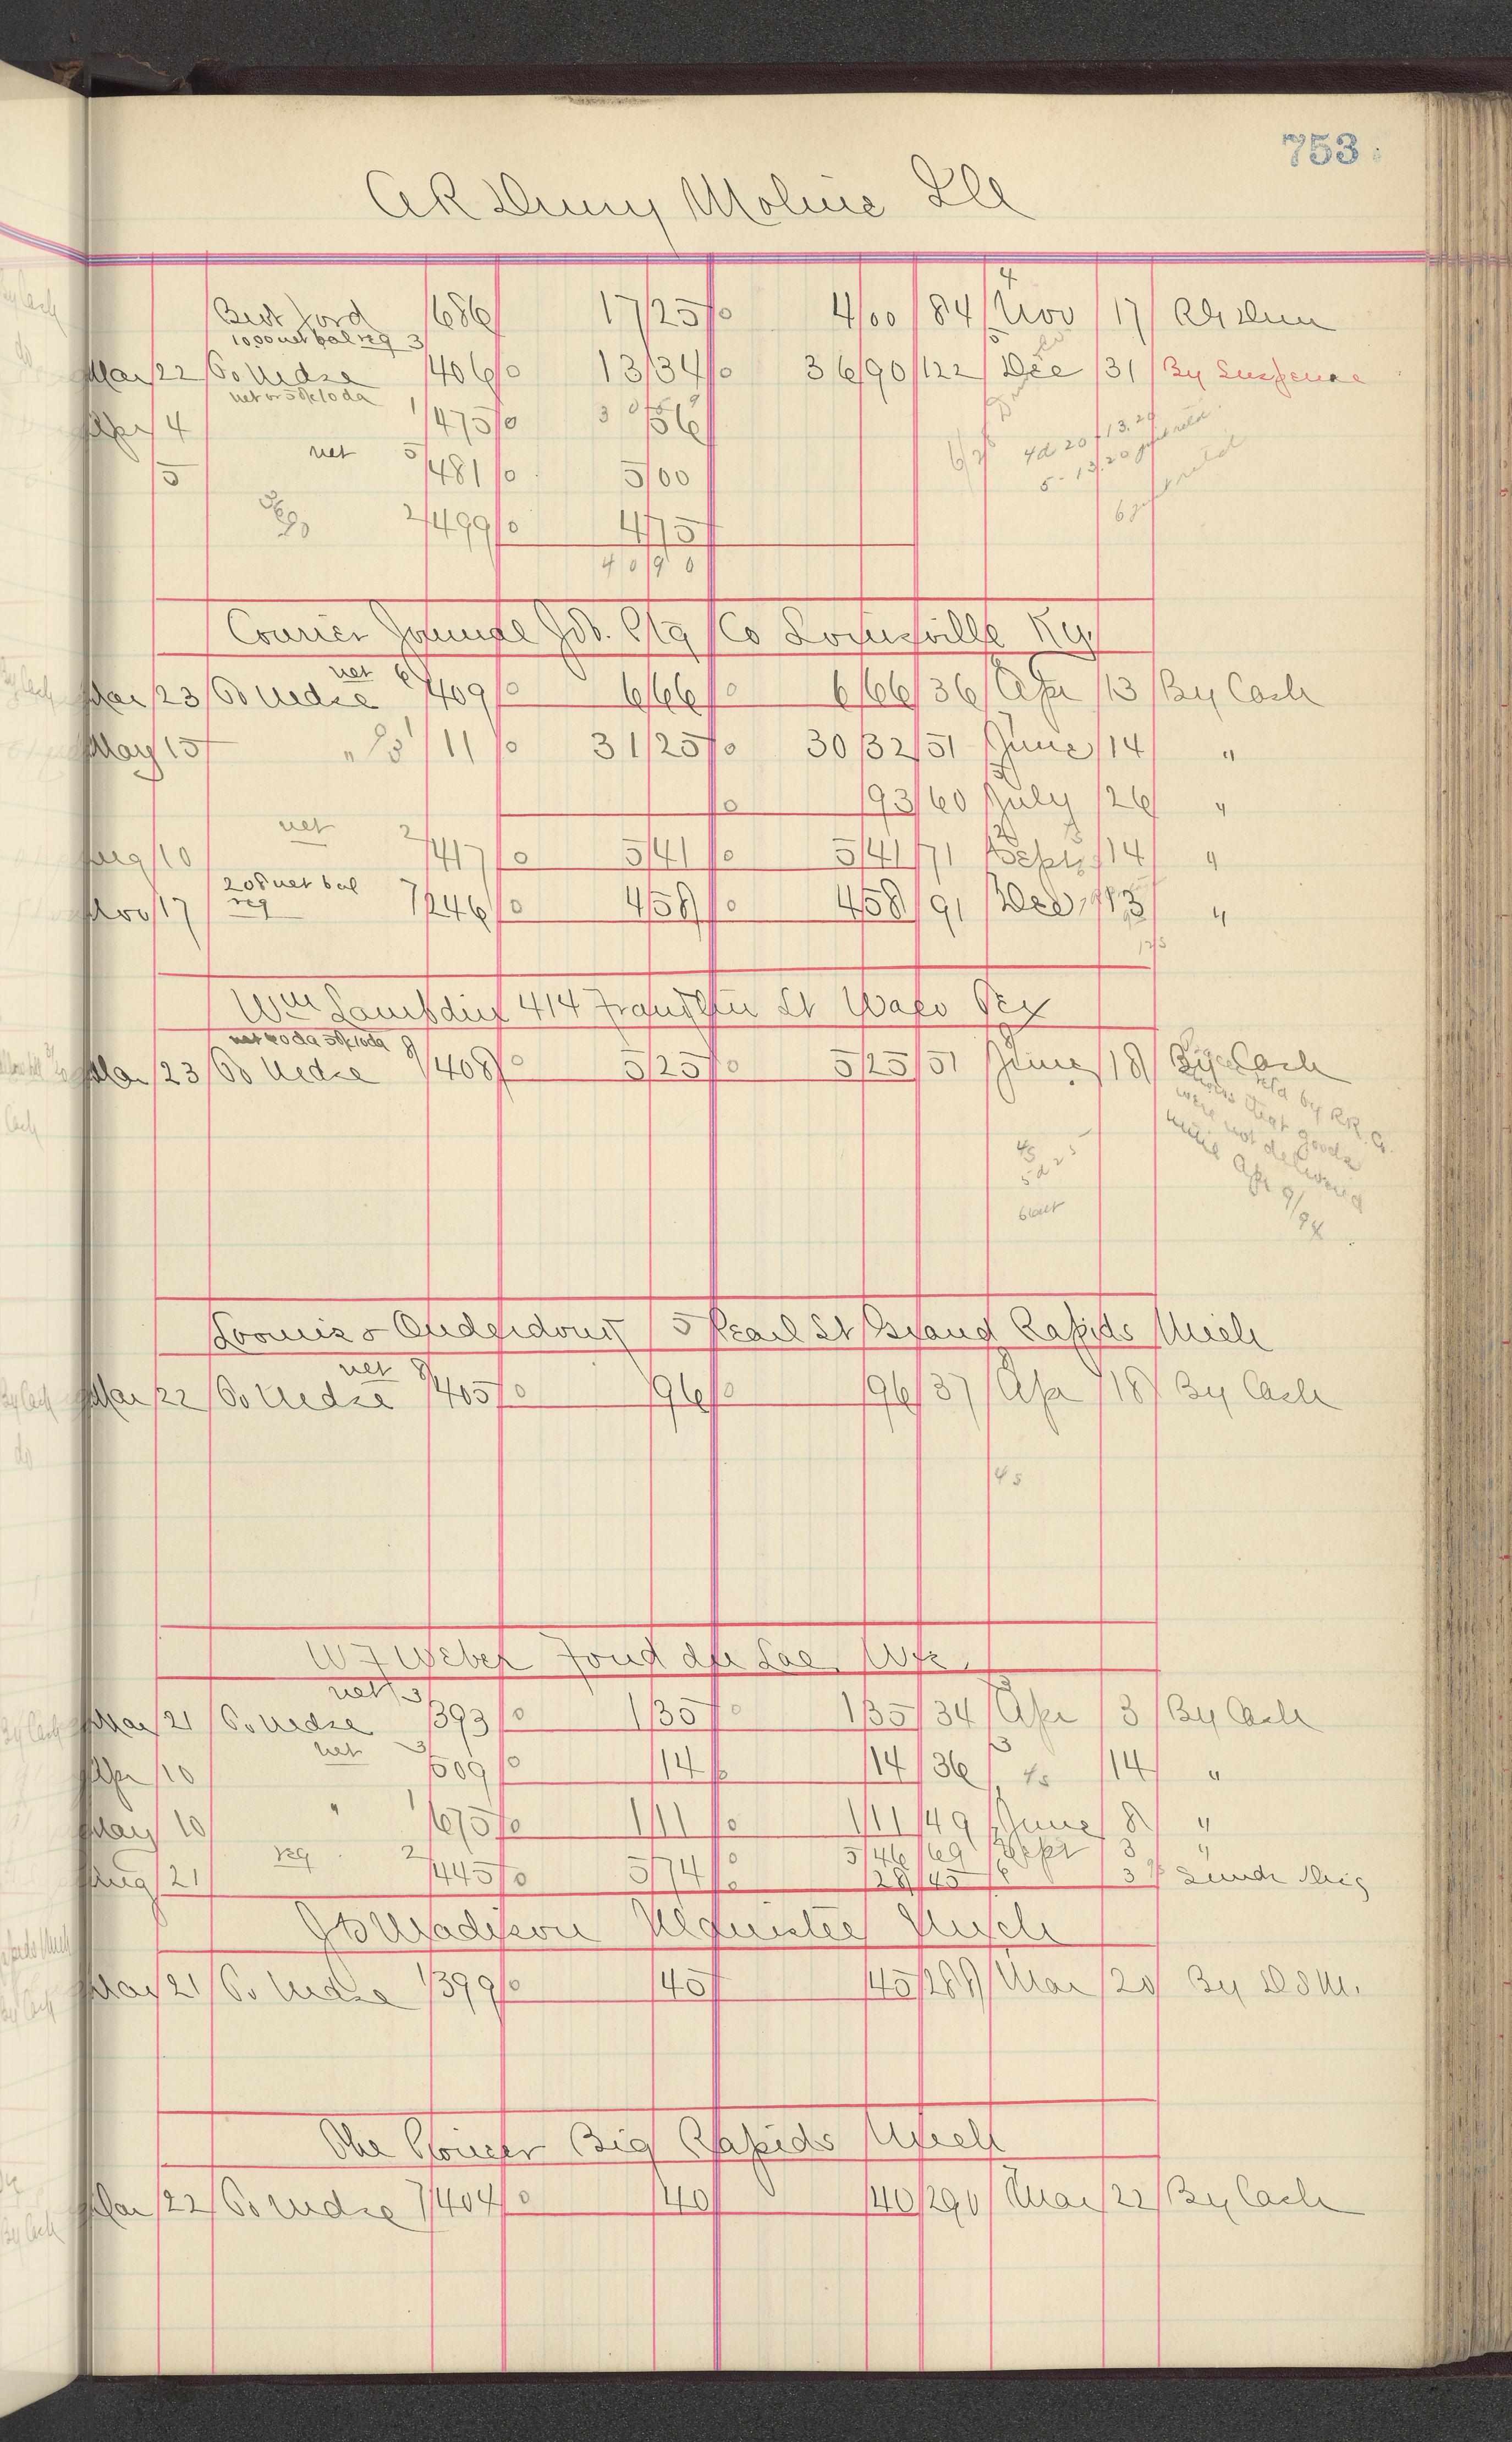 753
Moline Ill
686 17 25 4 00 84 Nov 17
1000 net bal reg 3
Mar 22 To Mdse 406 13 34 36 90 122 Dec 31 By Suspense
Apr 4 1 475 56
5 net 5 481 5 00
2 499 4 75
40 90
Courier Journal Job Ptg Co Louisville Ky
net 6
Mar 23 To Mdse 409 6 66 6 66 36 Apr 13 By Cash
May 15 " 1 11 31 25 30 32 51 June 14 "
93 60 July 26 "
Aug 10 net 2 417 5 41 5 41 71 Sept 14 "
20 net bal
Nov 17 reg 7 246 4 58 4 58 91 Dec 13 "
Wm 414 Franklin St Waco Tex
Mar 23 To Mdse 8 408 5 25 5 25 51 June 18 By Cash
by R.R. Co.
that goods
were not delivered
until Apr 9/94
Loomis & Onderdonk 5 Pearl St Grand Rapids Mich
net 8
Mar 22 To Mdse 405 96 96 37 Apr 18 By Cash
45
W F Weber Fond du Lac Wis.
net 3
Mar 21 To Mdse 393 1 35 1 35 34 Apr 3 By Cash
Apr 10 net 3 509 14 14 36 14 "
May 10 " 1 675 1 11 1 11 49 June 8 "
5 46 69 Sept 3 "
Aug 21 reg 2 445 5 74 28 45 3
J B Madison Manistee Mich
Mar 21 To Mdse 1 399 45 45 289 Mar 20 By
The Pioneer Big Rapids Mich
Mar 22 To Mdse 7 404 40 40 290 Mar 22 By Cash